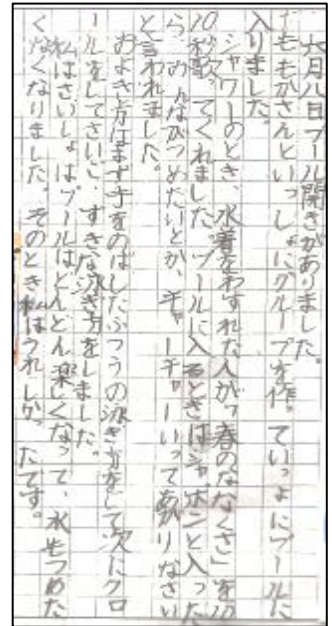 六月八日プール開きがありました。
ももかさんといっしょにグループを作っていっょにプールに
入りました。
シャワーのとき、水着をわすれた人が「春のななくさ」を10
10秒歌ってくれました。プールに入るときはジャボンと入った
ら、みんながつめたいとか、ギャーギャーいってあがりなさい
と言われました。
およぎ方はまず手をのばしたふつうの泳ぎ方をして次にクロ
ールをしてさいご、すきな泳ぎ方をしました。
私はさいしょはプールはどんどん楽しくなって、水もつめた
くなくなりました。そのとき私はうれしかったです。